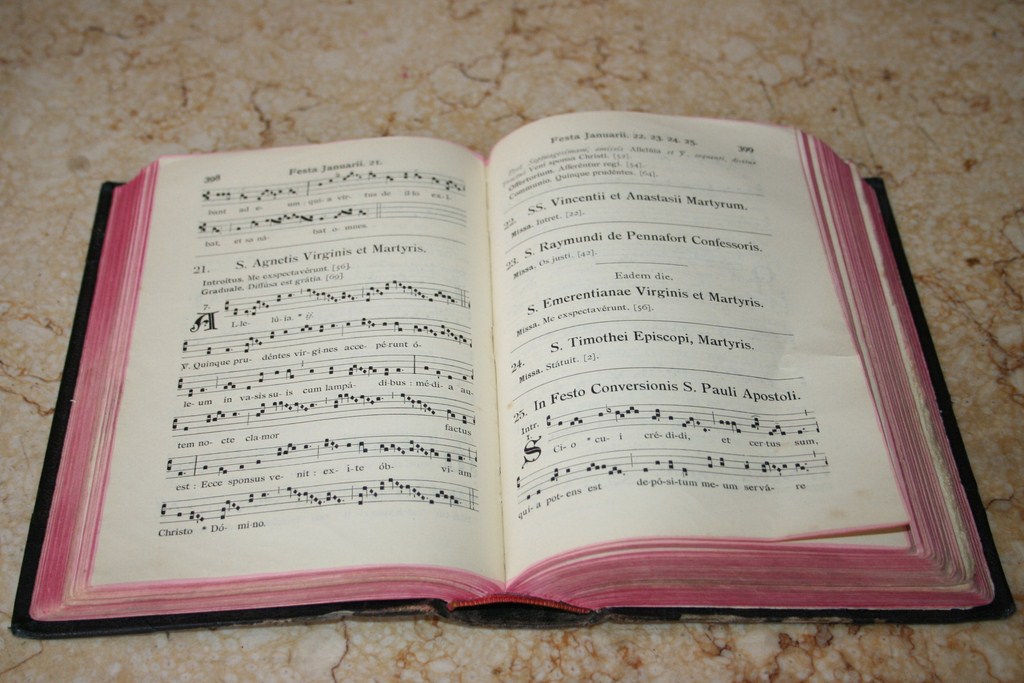 398 Festa Januarii. 21.
bunt ad e- um : qui-a vir- tus de il-lo ex-i-
bat, et sa-ná- bat o-mnes.
21. S. Agnetis Virginis et Martyris.
Introitus. Me exspectavérunt. [56].
Graduale. Diffúsa est grátia. [69].
7.
AL-le- lú-ia. * ij.
℣. Quinque pru- déntes vír-gi-nes acce- pé-runt ó-
le- um in va-sis su- is cum lampá- di-bus : mé-di- a au-
tem no- cte cla-mor factus
est : Ecce sponsus ve- nit : ex- í-te ób- vi-am
Christo * Dó- mi-no.
Festa Januarii. 22. 23. 24. 25. 399
Post Septuagesimam, omissis Allelúia et ℣. sequenti, dicitur
Tractus Veni sponsa Christi. [72].
Offertorium. Afferéntur regi. [54].
Communio. Quinque prudéntes. [64].
22. SS. Vincentii et Anastasii Martyrum.
Missa. Intret. [22].
23. S. Raymundi de Pennafort Confessoris.
Missa. Os justi. [42].
Eadem die.
S. Emerentianae Virginis et Martyris.
Missa. Me exspectavérunt. [56].
24. S. Timothei Episcopi, Martyris.
Missa. Státuit. [2].
25. In Festo Conversionis S. Pauli Apostoli.
Intr.
1.
SCi- o * cu- i cré-di-di, et cer-tus sum,
qui- a pot-ens est de-pó-si-tum me-um servá- re